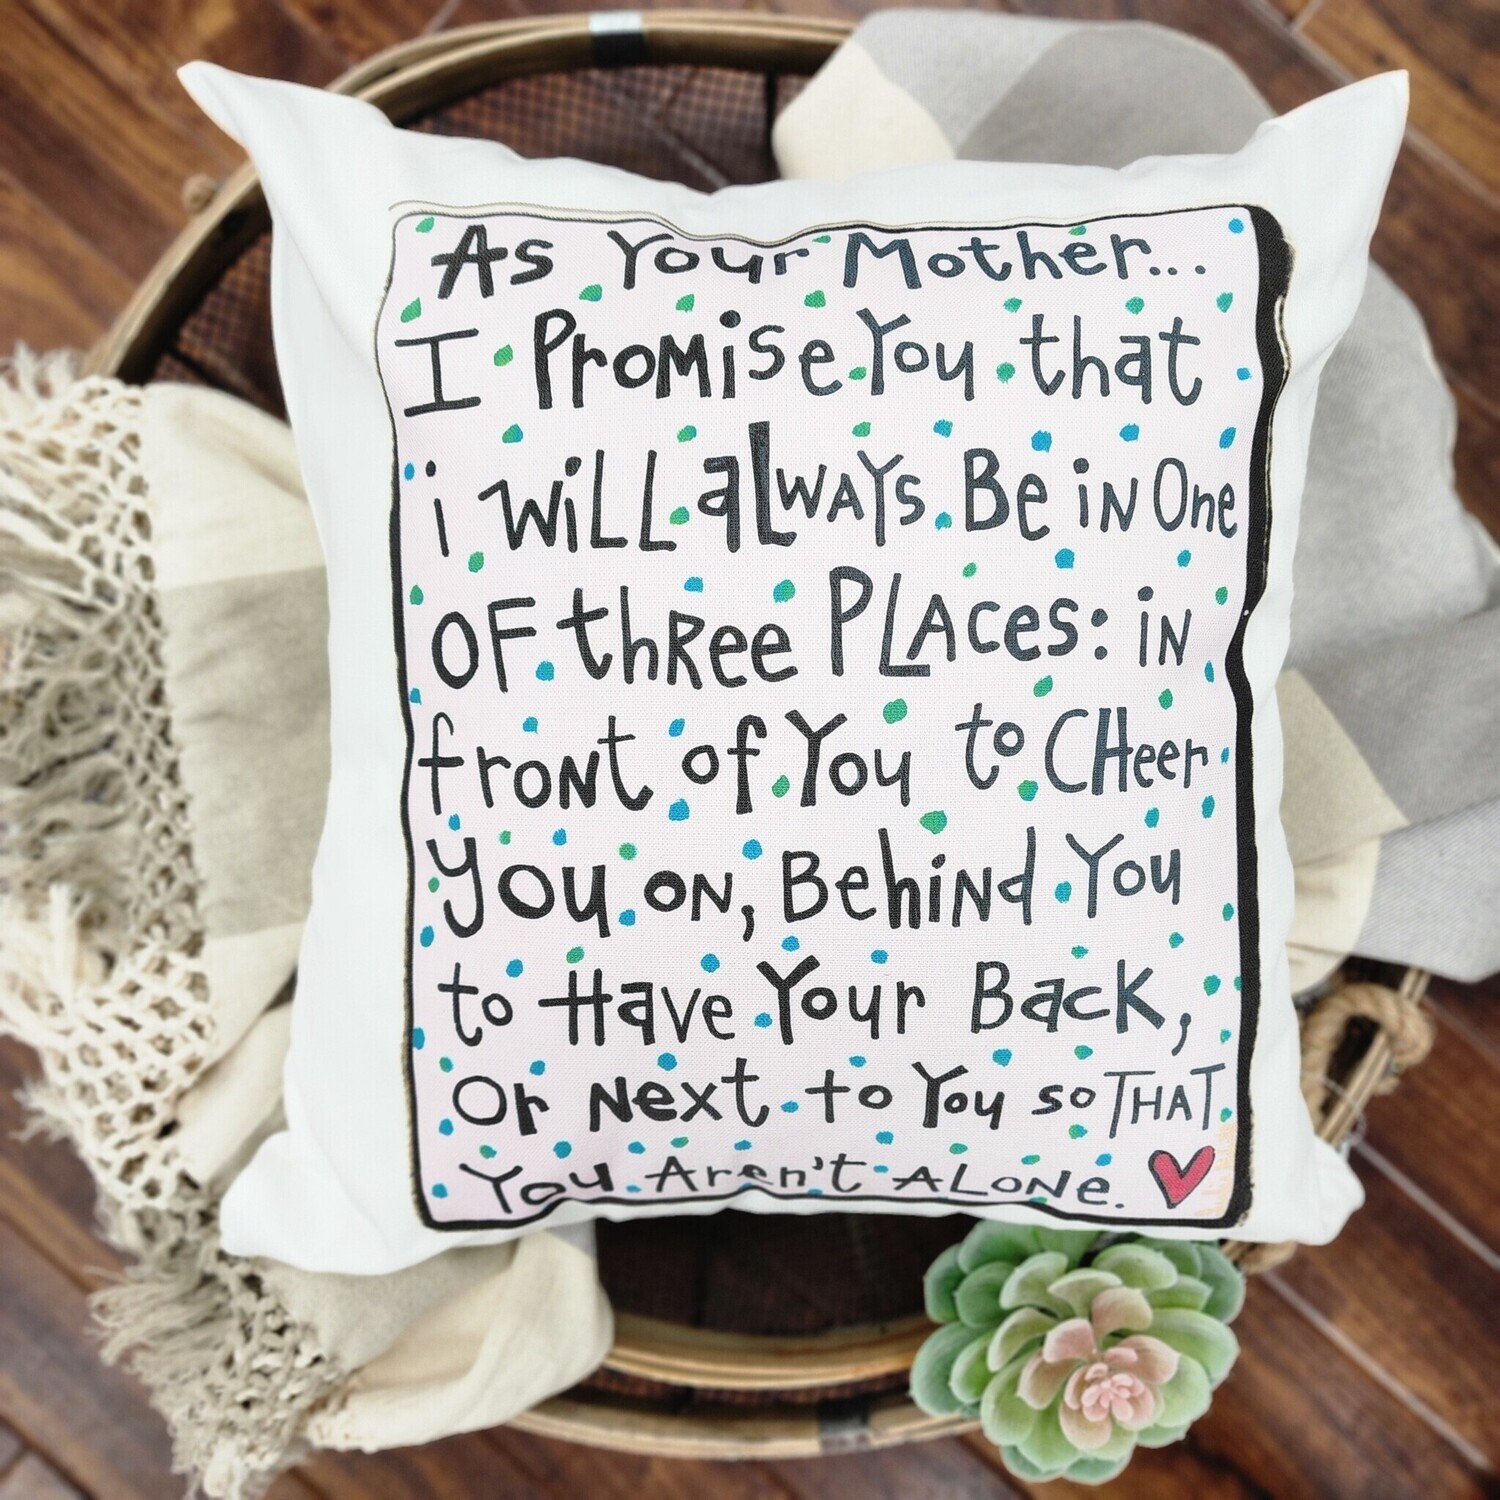 As Your Mother...
I Promise You that
i will always Be in One
OF three PLAces: in
front of You to CHeer
you on, Behind You
to Have Your Back,
Or Next to You so THAT
You Aren't ALONe.